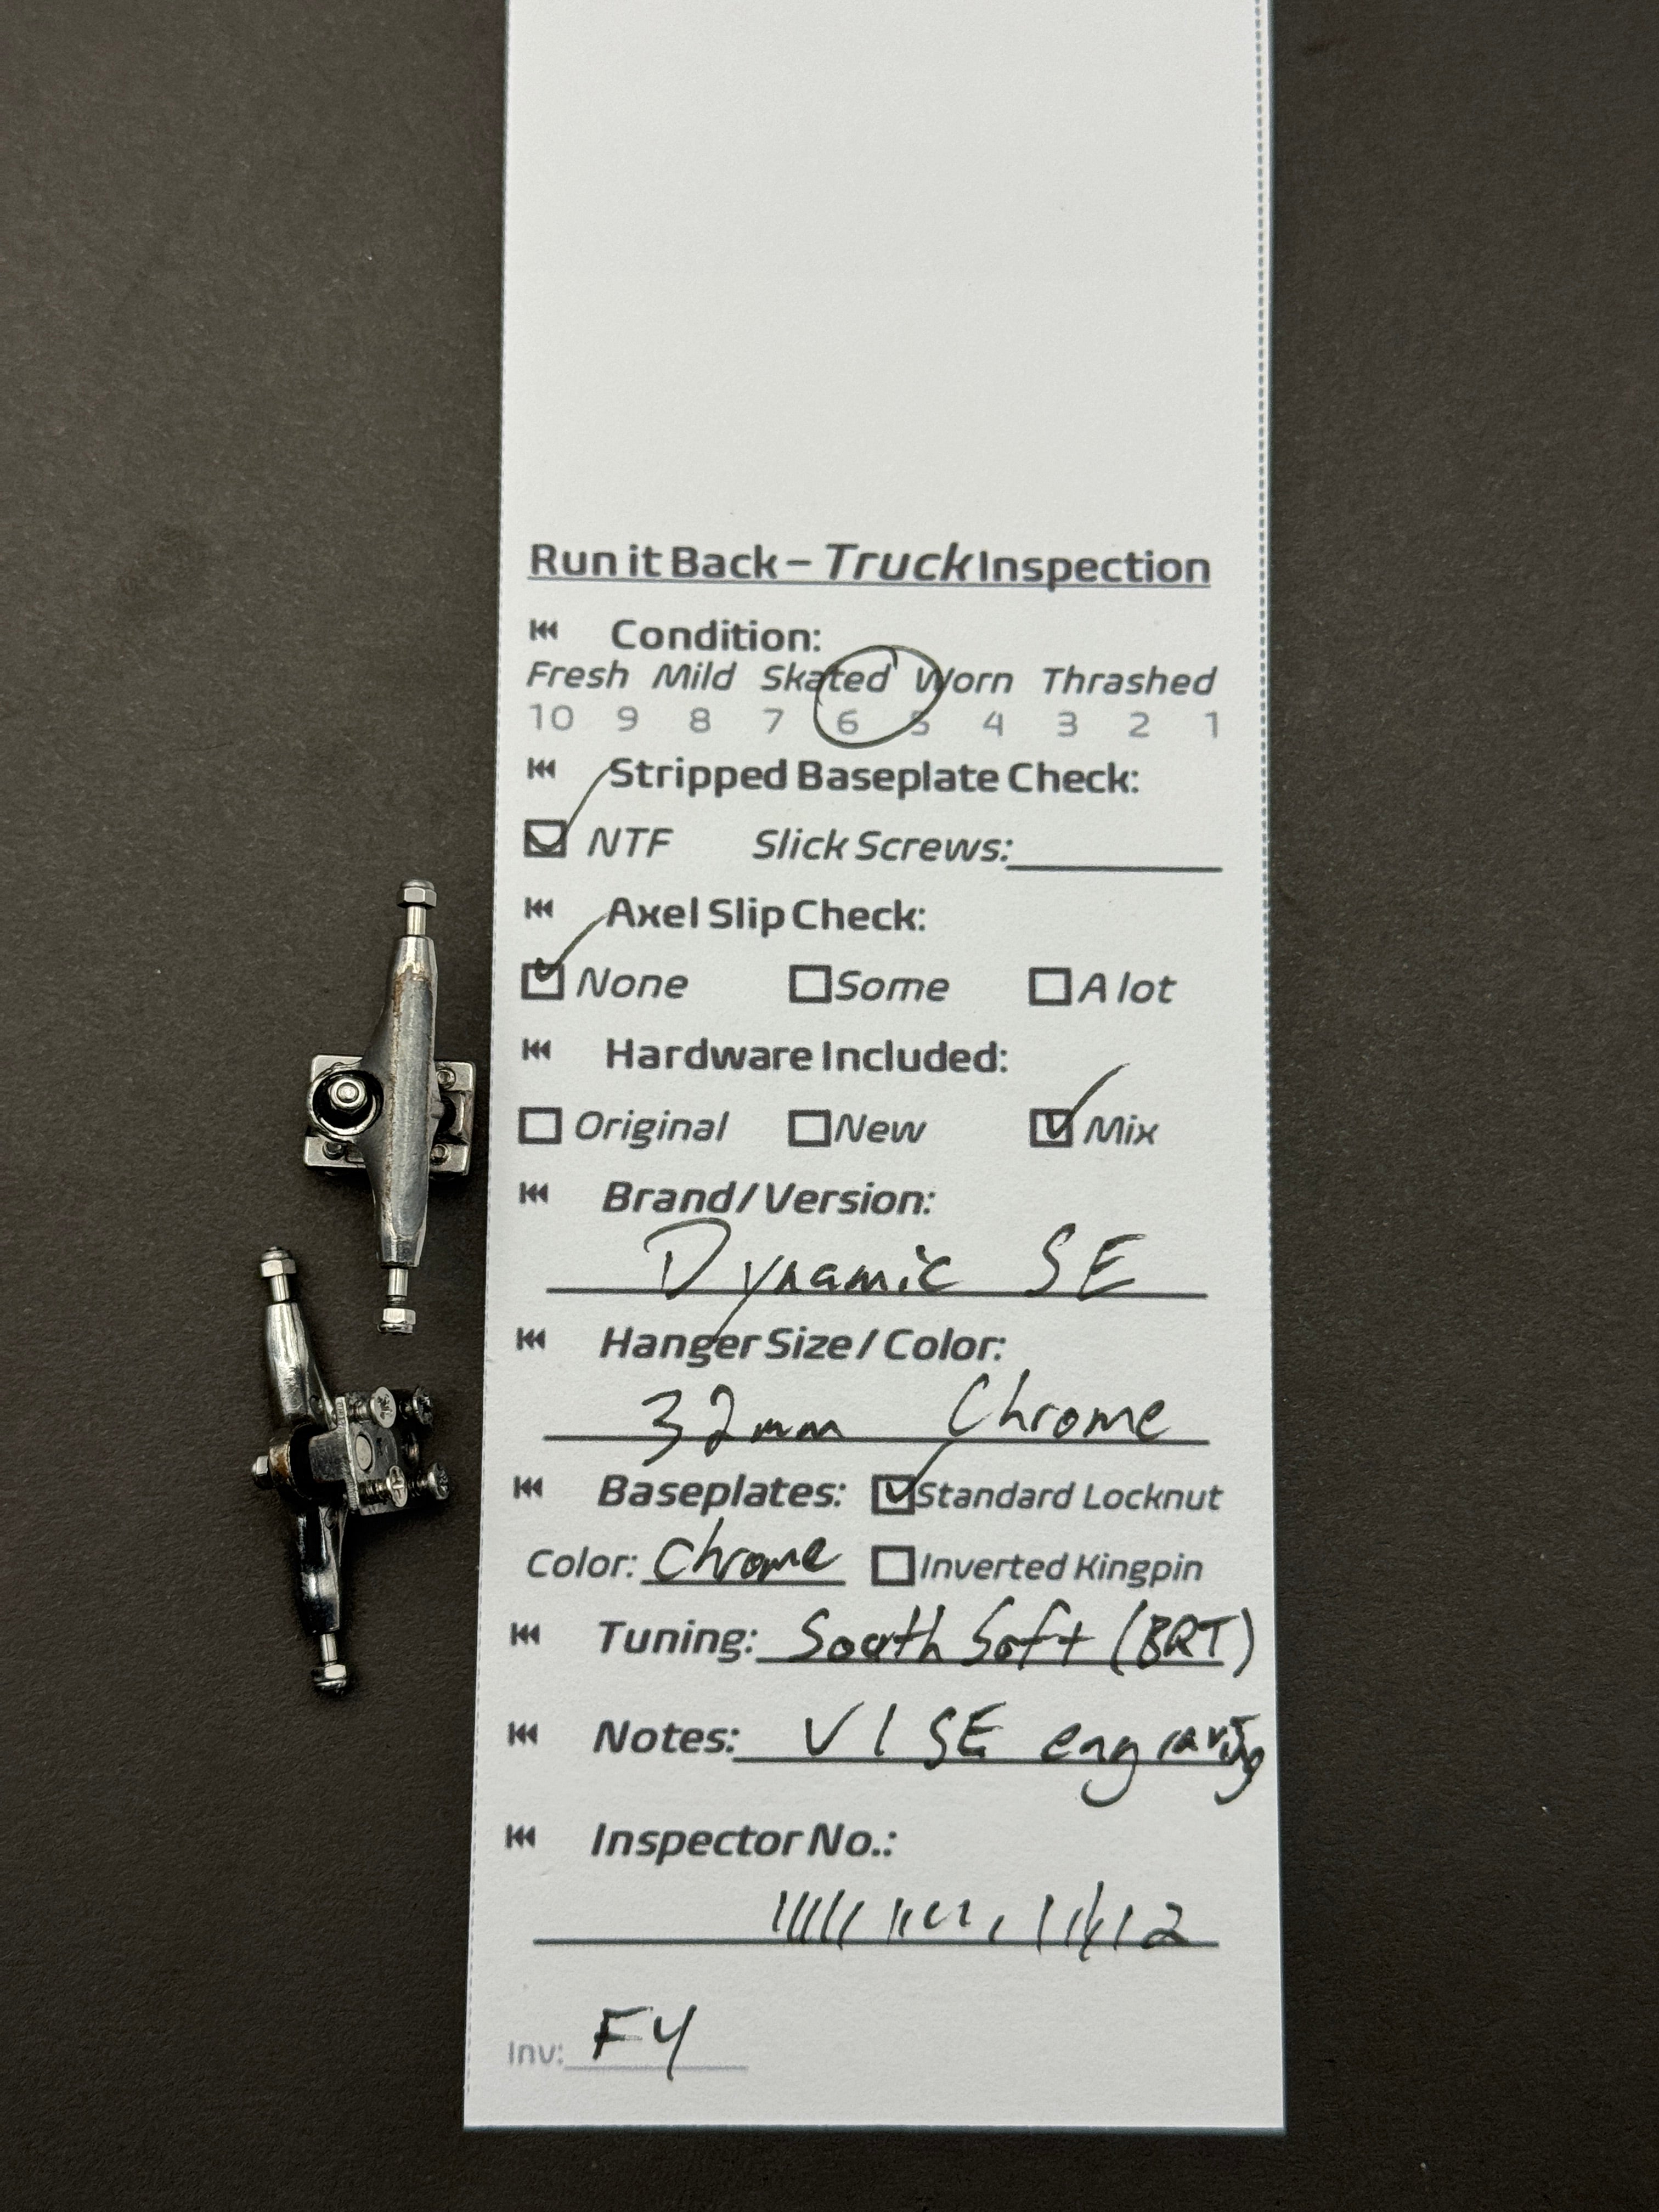 Run it Back – Truck Inspection
Condition:
Fresh Mild Skated Worn Thrashed
10 9 8 7 6 5 4 3 2 1
Stripped Baseplate Check:
NTF Slick Screws:
Axel Slip Check:
None Some A lot
Hardware Included:
Original New Mix
Brand/Version:
Dynamic SE
Hanger Size / Color:
32mm Chrome
Baseplates: Standard Locknut
Color: Chrome Inverted Kingpin
Tuning: South Soft (BRT)
Notes: V1 SE engraving
Inspector No.:
12
Inv: F4